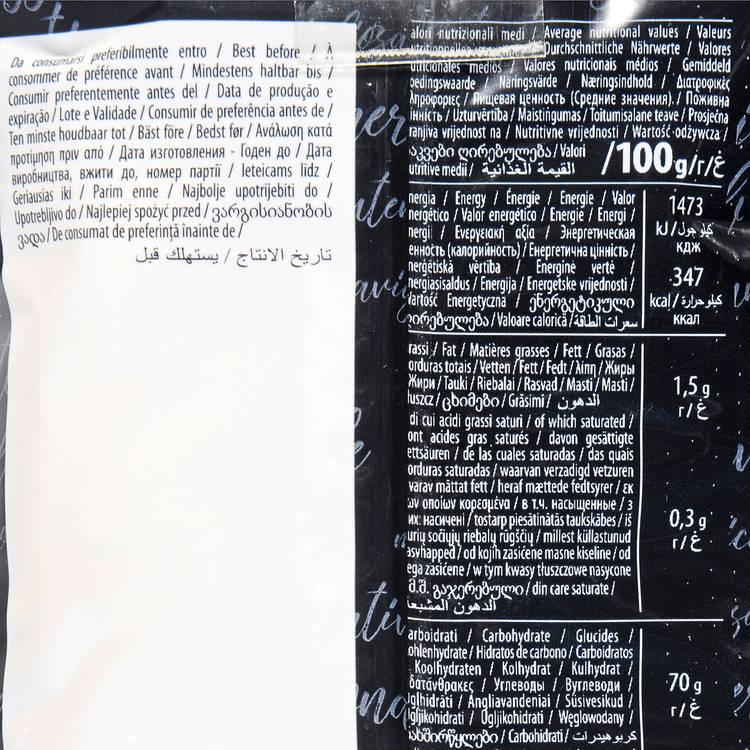 Da consumarsi preferibilmente entro / Best before / À
consommer de préférence avant / Mindestens haltbar bis /
Consumir preferentemente antes del / Data de produção e
expiração / Lote e Validade / Consumir de preferência antes de /
Ten minste houdbaar tot / Bäst före / Bedst før / Ανάλωση κατά
προτίμηση πριν από / Дата изготовления - Годен до / Дата
виробництва, вжити до, номер партії / Ieteicams līdz /
Geriausias iki / Parim enne / Najbolje upotrijebiti do /
Upotrebljivo do / Najlepiej spożyć przed / ვარგისიანობის
ვადა / De consumat de preferinţă înainte de /
تاريخ الانتاج / يستهلك قبل
alori nutrizionali medi / Average nutritional values / Valeurs
Durchschnittliche Nährwerte / Valores
nutricionales medios / Valores nutricionais médios / Gemiddeld
oedingswaarde / Näringsvärde / Næringsindhold / Διατροφικές
ληροφορίες / Пищевая ценность (Средние значения). / Поживна
інність / Uzturvērtība / Maistingumas / Toitumisalane teave / Prosječna
ranjiva vrijednost na / Nutritivne vrijednosti / Wartość odżywcza /
კვები ღირებულება / Valori
utritive medii / القيمة الغذائية
/100g/г/غ
nergia / Energy / Énergie / Energie / Valor
nergético / Valor energético / Energie / Energi /
nergi / Ενεργειακή αξία / Энергетическая
енность (калорийность) / Енергетична цінність /
nerģētiskā vērtība / Energinė vertė /
nergiasisaldus / Energija / Energetske vrijednosti /
Wartość Energetyczna / ენერგეტიკული
ღირებულება / Valoare calorică / سعرات الطاقة
1473
kJ / كيلو جول /
кдж
347
kcal / كيلو حرارية /
ккал
rassi / Fat / Matières grasses / Fett / Grasas /
orduras totais / Vetten / Fett / Fedt / λίπη / Жиры
Жири / Tauki / Riebalai / Rasvad / Masti / Masti /
łuszcz / ცხიმები / Grăsimi / الدهون
1,5 g
г/غ
di cui acidi grassi saturi / of which saturated /
ont acides gras saturés / davon gesättigte
ettsäuren / de las cuales saturadas / das quais
orduras saturadas / waarvan verzadigd vetzuren
varav mättat fett / heraf mættede fedtsyrer / εκ
ων οποίων κορεσμένα / в т.ч. насыщенные / з
их: насичені / tostarp piesātinātās taukskābes / iš
urių sočiųjų riebalų rūgščių / millest küllastunud
asvhapped / od kojih zasićene masne kiseline / od
ega zasićene / w tym kwasy tłuszczowe nasycone
მ.შ. გაჯერებული / din care saturate /
الدهون المشبعة
0,3 g
г/غ
arboidrati / Carbohydrate / Glucides /
ohlenhydrate / Hidratos de carbono / Carboidratos
Koolhydraten / Kolhydrat / Kulhydrat /
δατάνθρακες / Углеводы / Вуглеводи /
gļhidrāti / Angliavandeniai / Süsivesikud /
gljikohidrati / Ogljikohidrati / Węglowodany /
ახშირწყლები / Carbohidrati / كربوهيدرات
70 g
г/غ